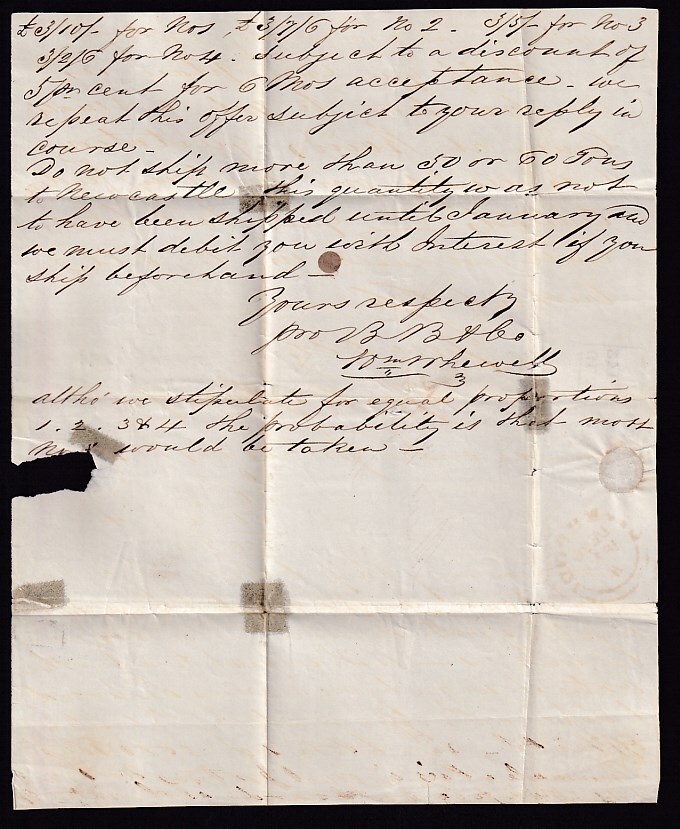 £3/10/- for No 1, £3/7/6 for No 2. 3/5/- for No 3
3/2/6 for No 4. Subject to a discount of
5 pr cent for 6 Mos acceptance - we
repeat this offer subject to your reply in
course -
Do not ship more than 50 or 60 Tons
to Newcastle, this quantity was not
to have been shipped until January and
we must debit you with Interest if you
ship beforehand -
Yours respecty
pro B B & Co
Wm Whewell
altho' we stipulate for equal proportions
1. 2. 3 & 4 the probability is that most
would be taken -